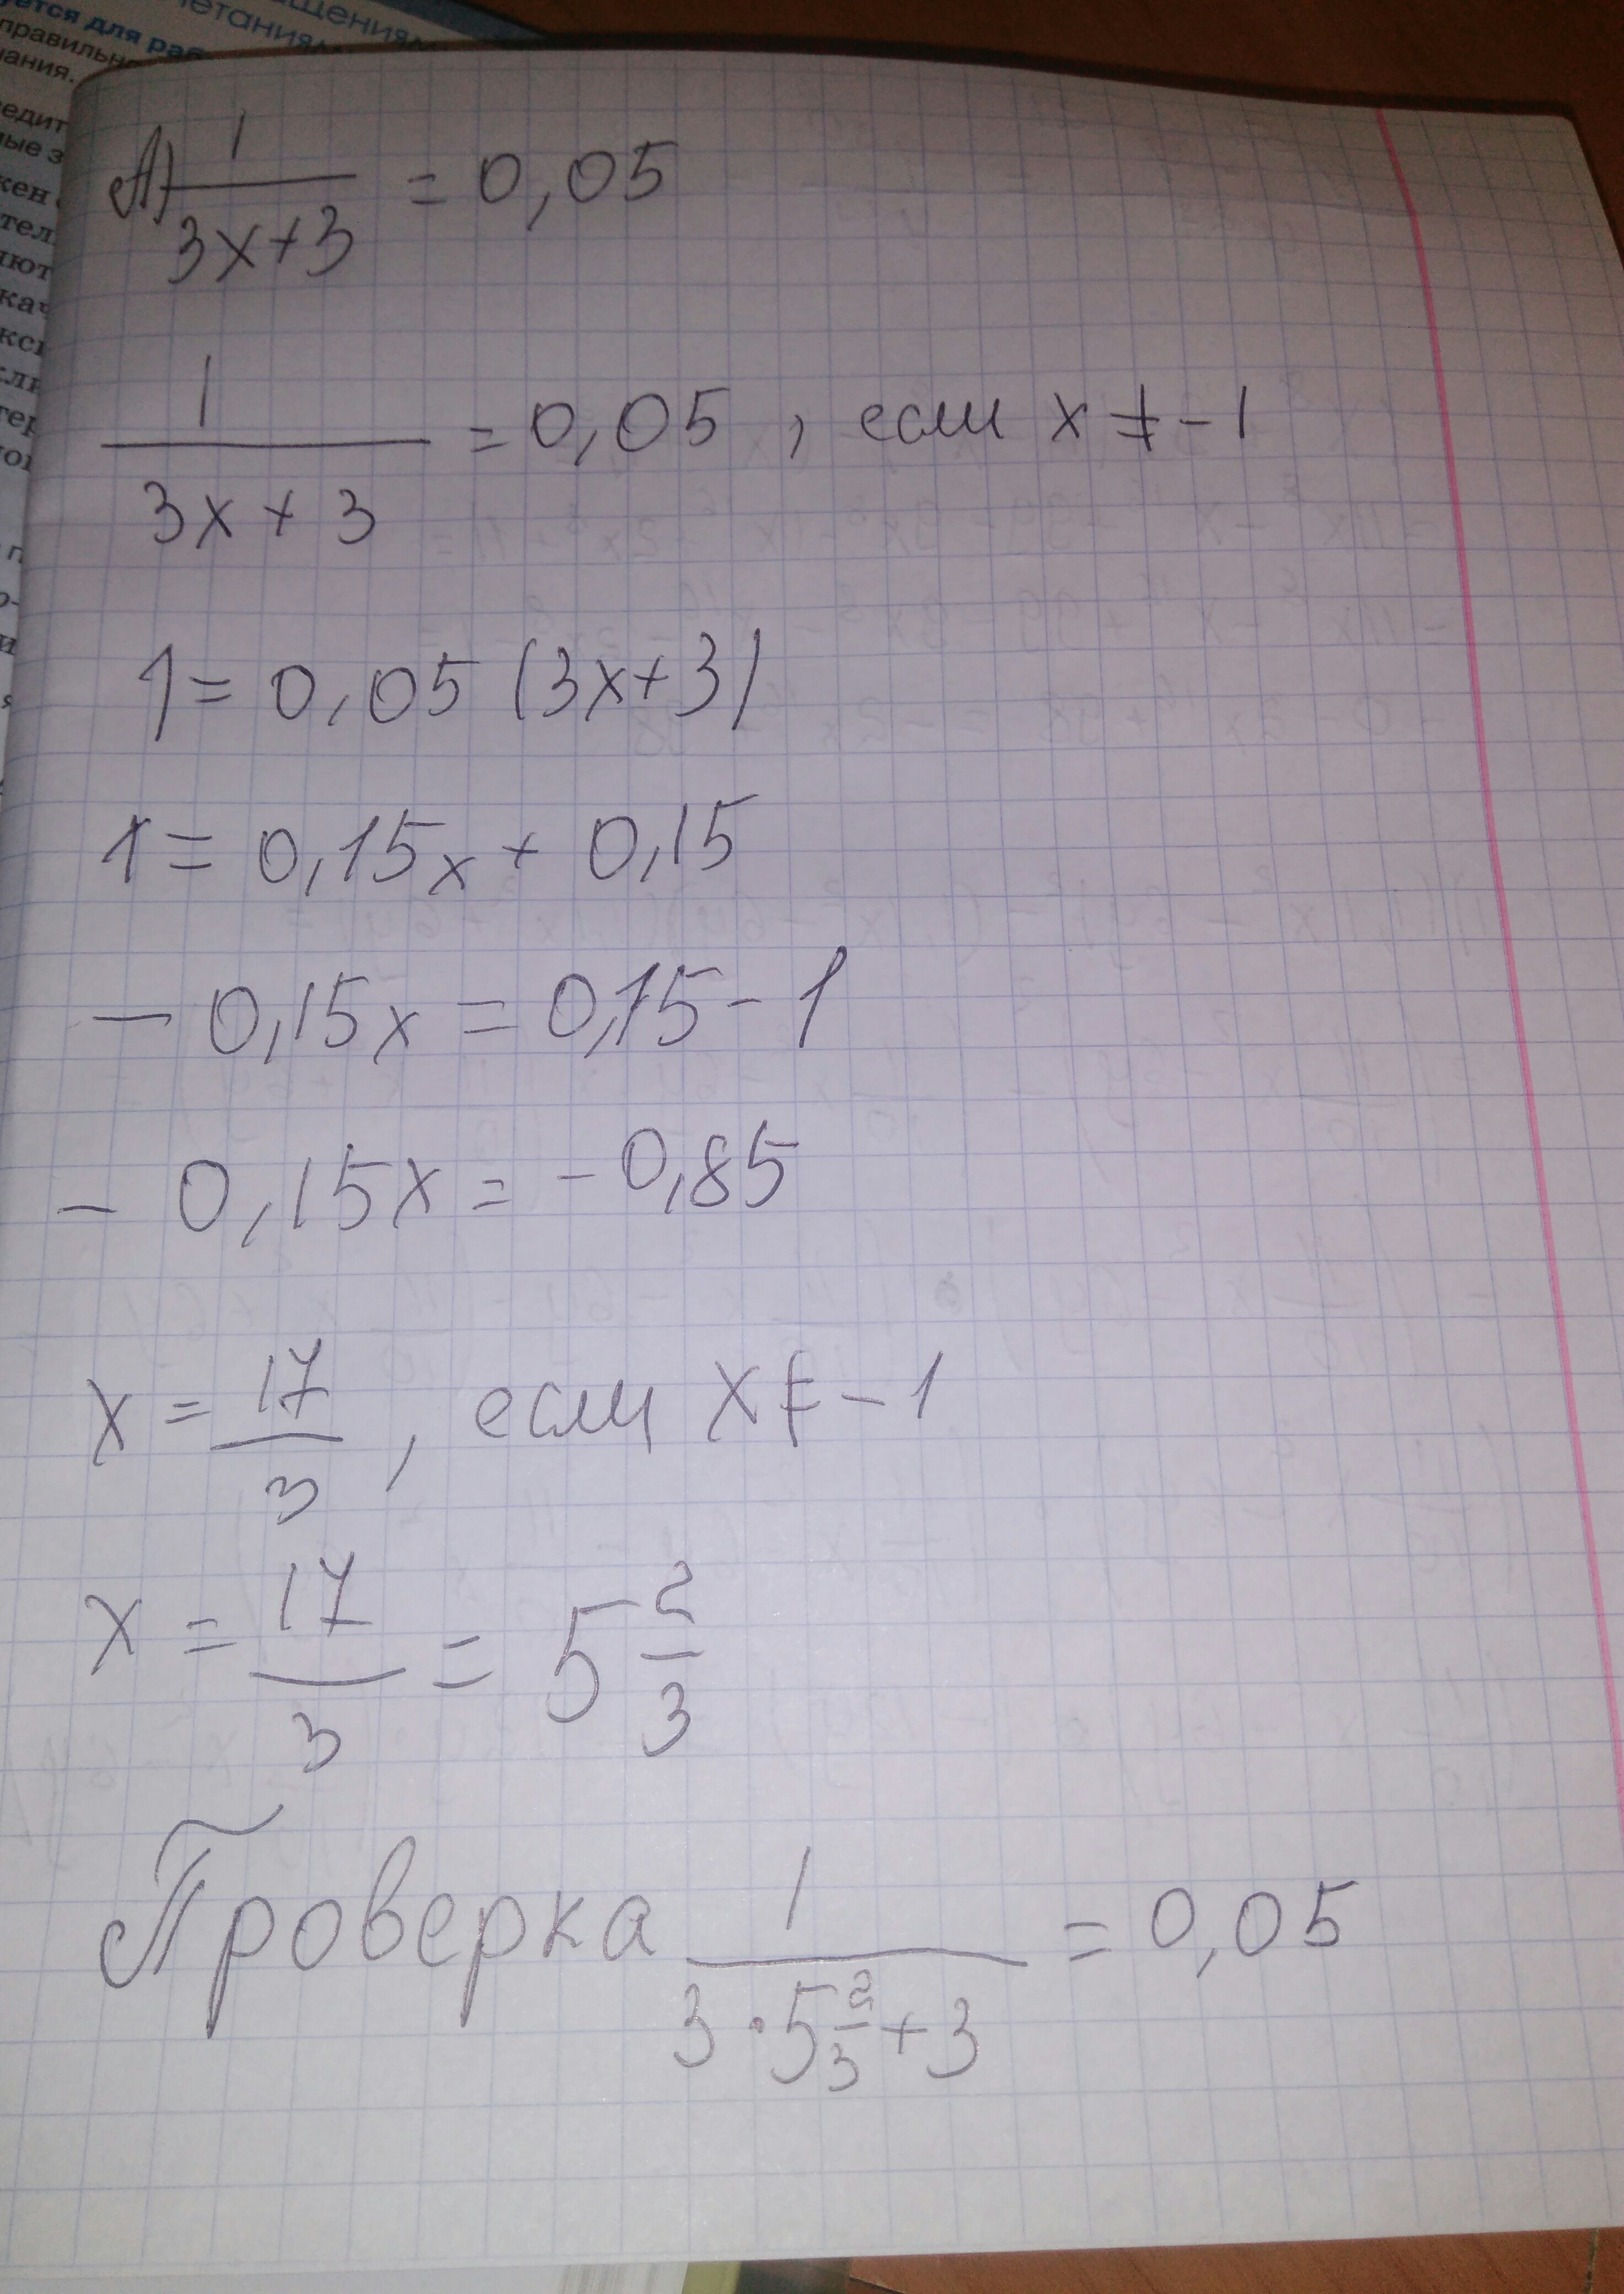 уется для раб
правильно
ания.
щениям
четаниям
А) 1/(3x+3) = 0,05
1/(3x+3) = 0,05 , если x ≠ -1
1 = 0,05 (3x+3)
1 = 0,15x + 0,15
- 0,15x = 0,15 - 1
- 0,15x = - 0,85
x = 17/3 , если x ≠ - 1
x = 17/3 = 5 2/3
Проверка 1/(3 · 5 2/3 + 3) = 0,05